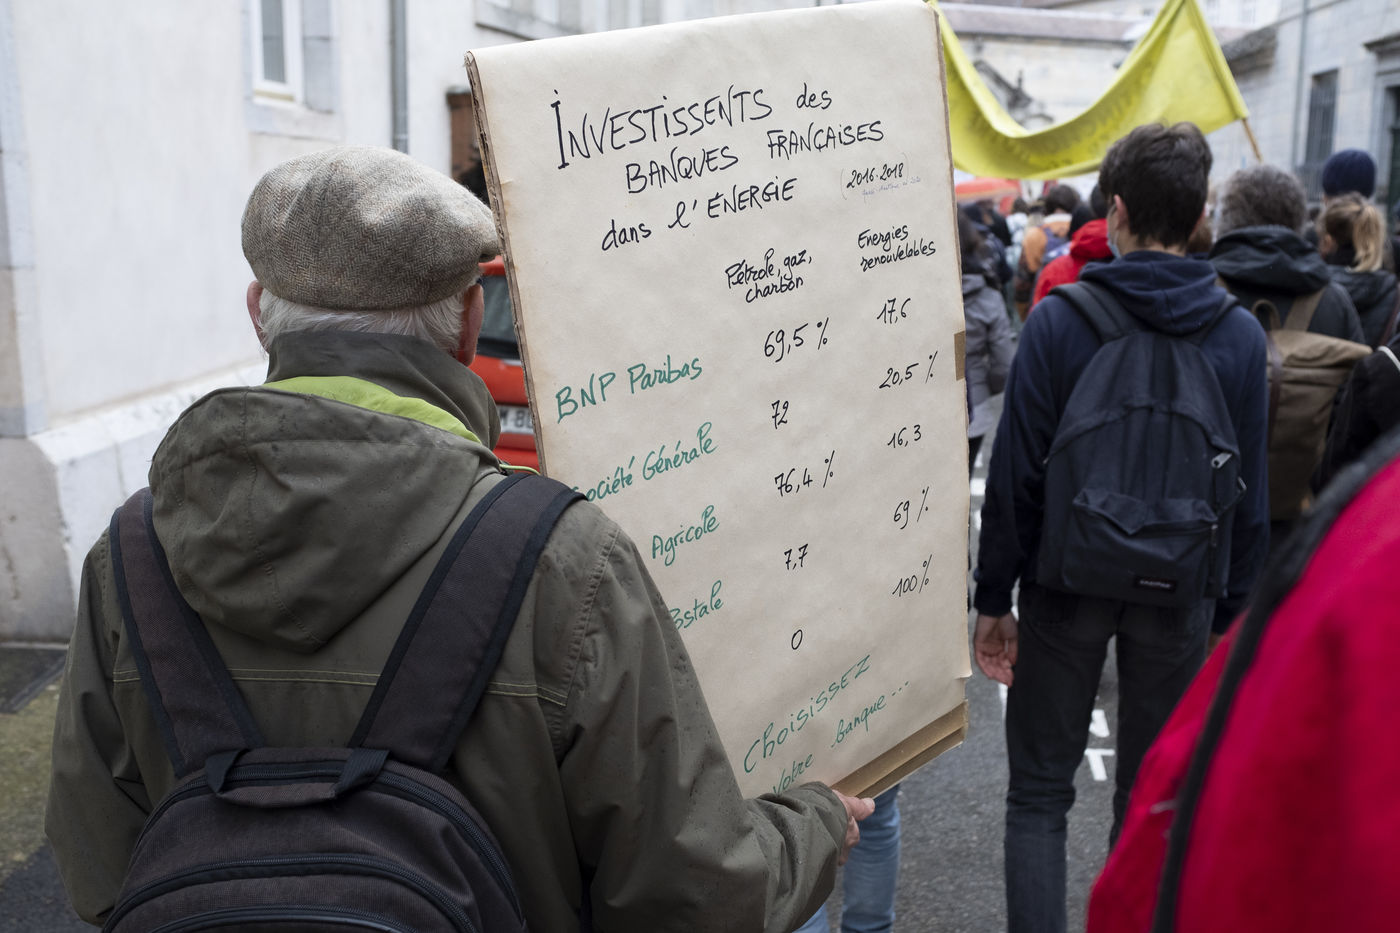 INVESTISSENTS des
BANQUES FRANÇAISES
dans l'ÉNERGIE (2016-2018)
Pétrole, gaz, charbon
Energies renouvelables
BNP Paribas 69,5 % 17,6
Société Générale 72 20,5 %
Agricole 76,4 % 16,3
7,7 69 %
0 100%
CHOISISSEZ
votre banque...
EASTPAK